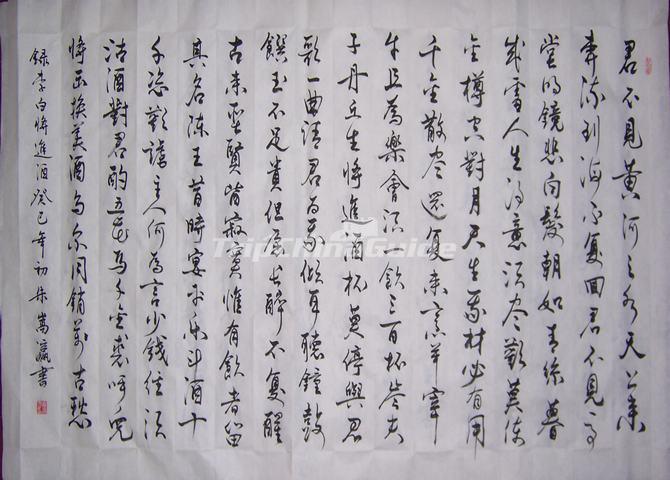 君不見黄河之水天上来
奔流到海不复回君不見高
堂明鏡悲白髮朝如青絲暮
成雪人生得意须尽歡莫使
金樽空對月天生我材必有用
千金散尽還复来烹羊宰
牛且為樂會须一飲三百杯岑夫
子丹丘生將進酒杯莫停與君
歌一曲請君為我倾耳聽鐘鼓
饌玉不足貴但愿长醉不复醒
古来聖賢皆寂寞惟有飲者留
其名陈王昔時宴平乐斗酒十
千恣歡謔主人何為言少錢径须
沽酒對君酌五花馬千金裘呼兒
將出换美酒与尔同銷萬古愁
録李白將進酒癸巳年初朱嵩瀛書
TripChinaGuide